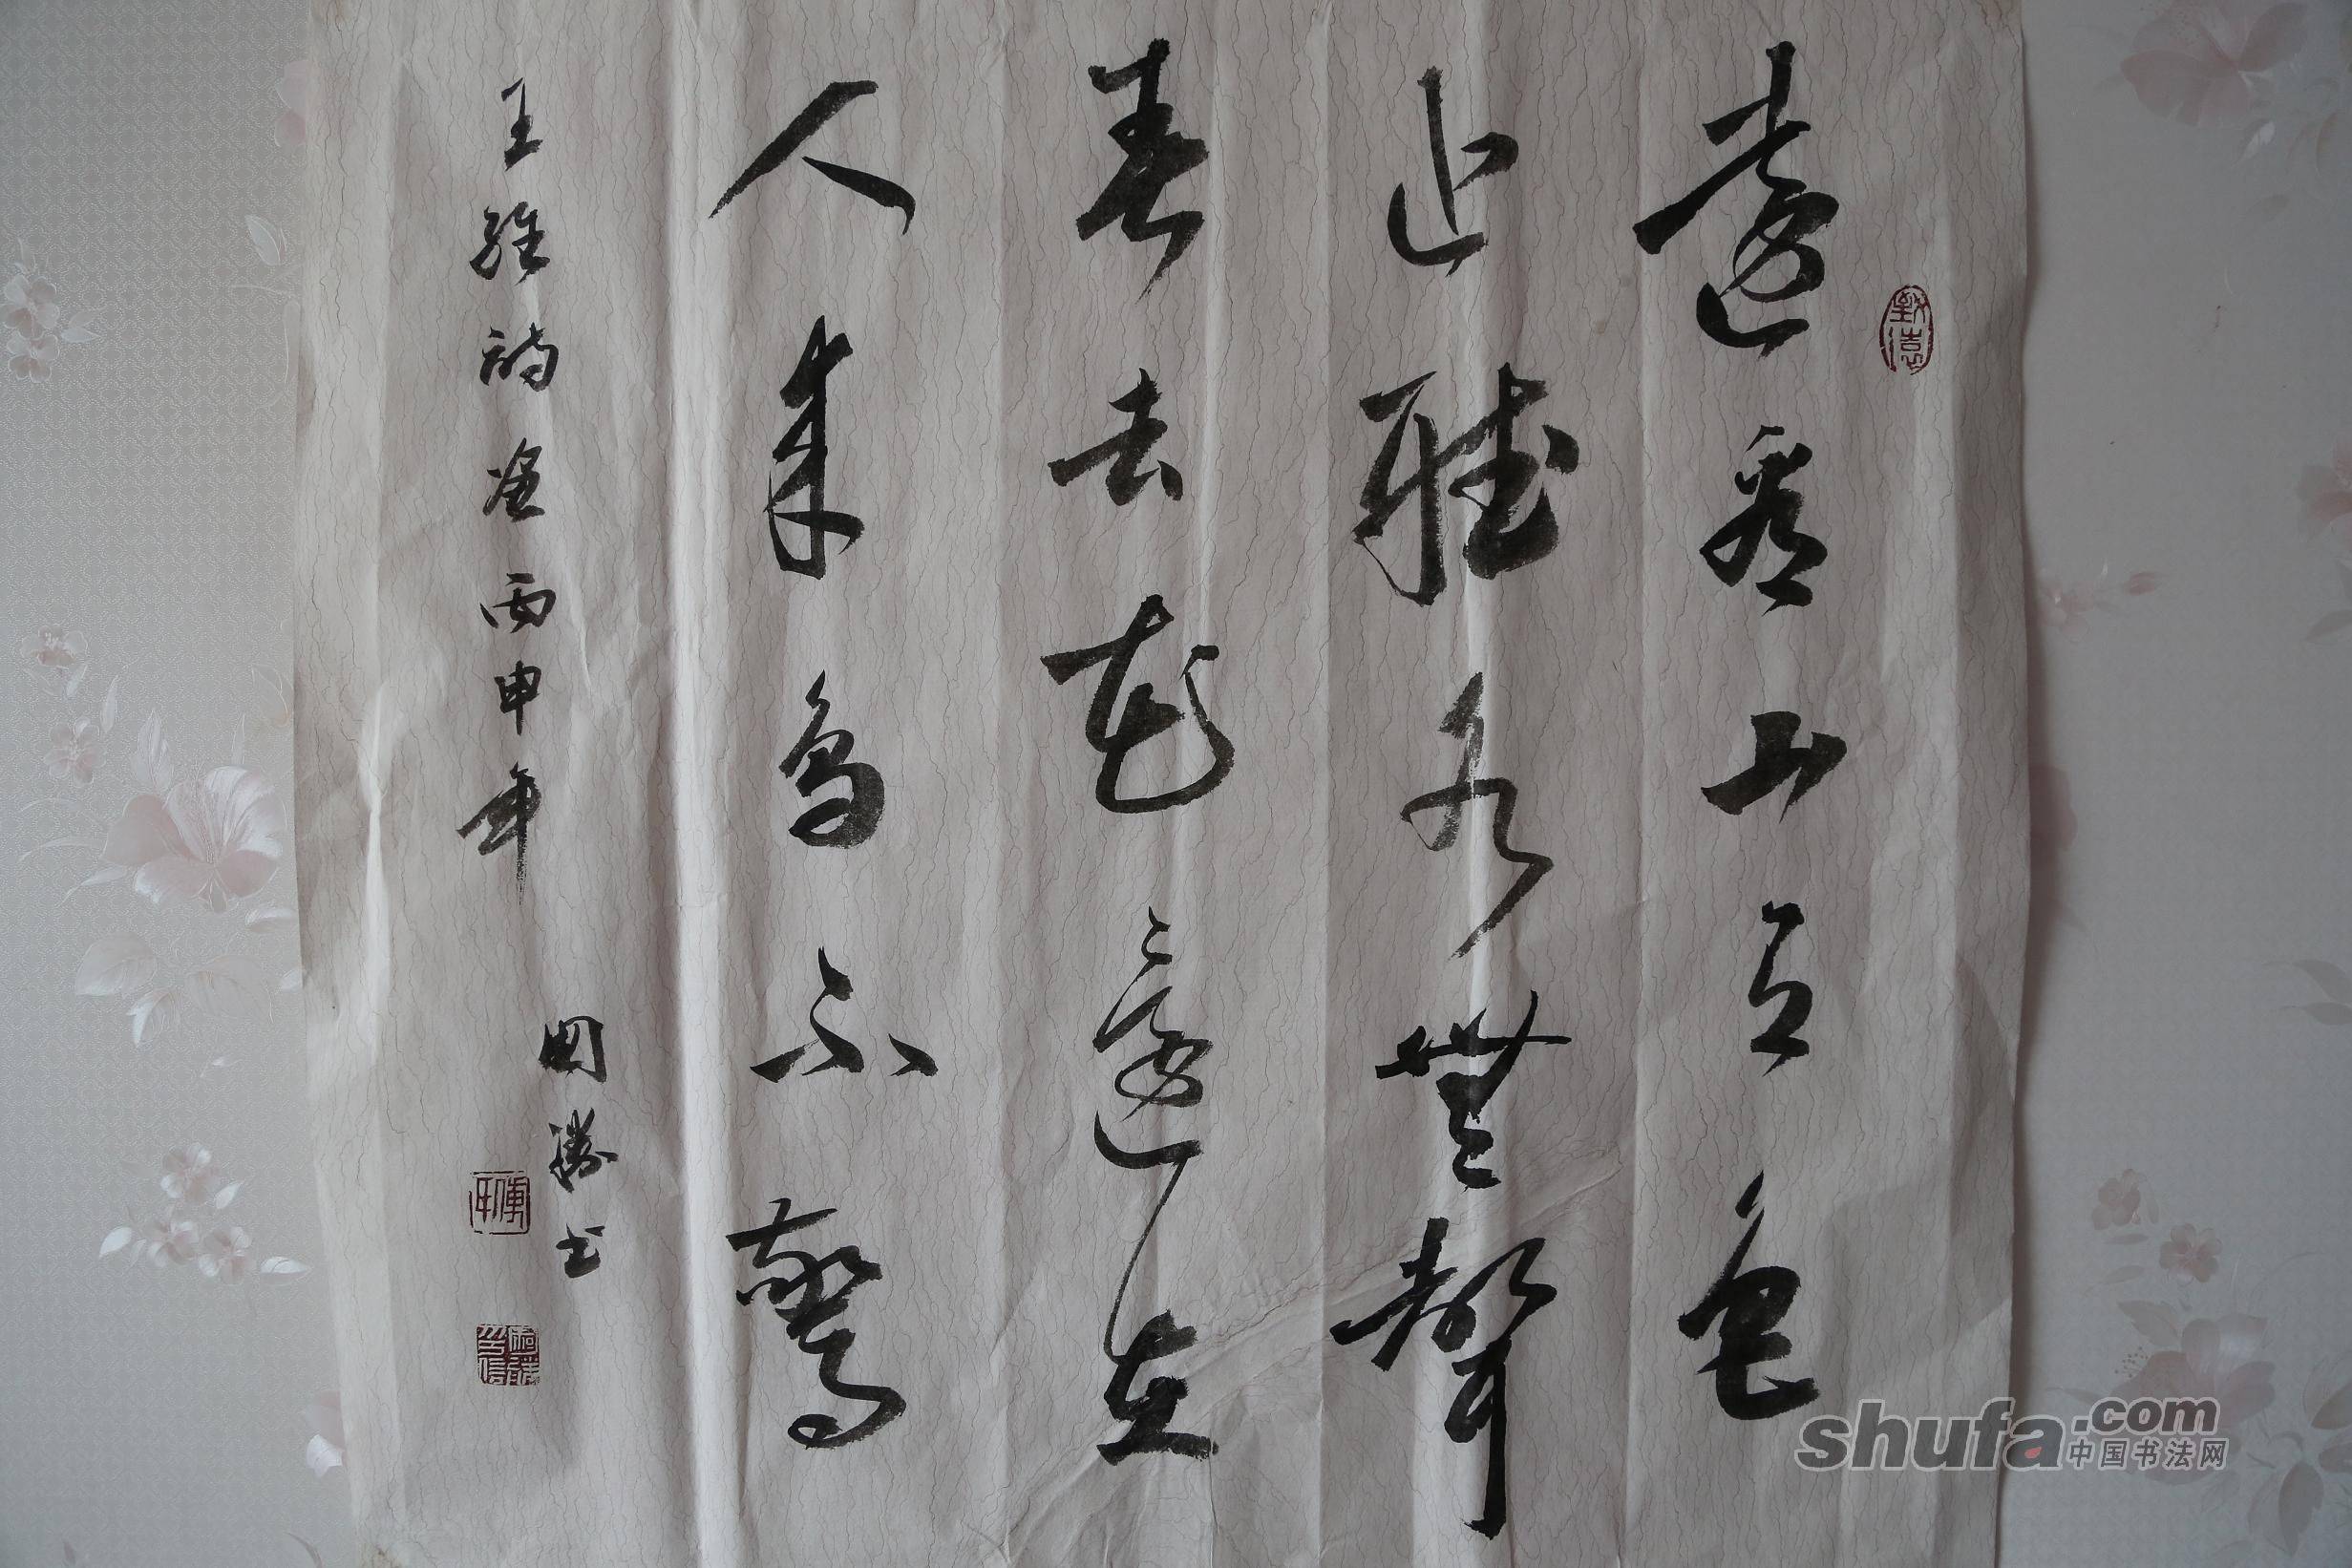 遠看山有色
近聽水無聲
春去花還在
人來鳥不驚
王維詩画丙申年
國勝书
致遠
shufa.com
中国书法网